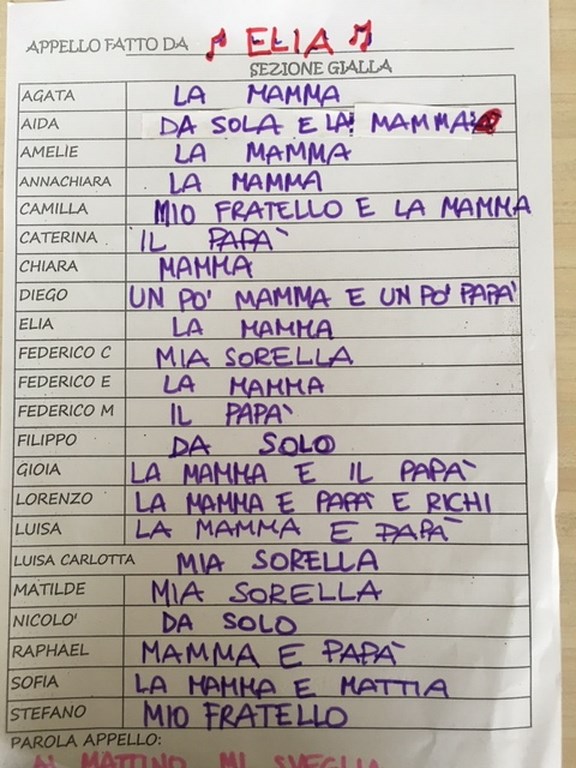 APPELLO FATTO DA ELIA
SEZIONE GIALLA
AGATA LA MAMMA
AIDA DA SOLA E LA MAMMA
AMELIE LA MAMMA
ANNACHIARA LA MAMMA
CAMILLA MIO FRATELLO E LA MAMMA
CATERINA IL PAPA'
CHIARA MAMMA
DIEGO UN PO' MAMMA E UN PO' PAPA'
ELIA LA MAMMA
FEDERICO C MIA SORELLA
FEDERICO E LA MAMMA
FEDERICO M IL PAPA'
FILIPPO DA SOLO
GIOIA LA MAMMA E IL PAPA'
LORENZO LA MAMMA E PAPA' E RICHI
LUISA LA MAMMA E PAPA'
LUISA CARLOTTA MIA SORELLA
MATILDE MIA SORELLA
NICOLO' DA SOLO
RAPHAEL MAMMA E PAPA'
SOFIA LA MAMMA E MATTIA
STEFANO MIO FRATELLO
PAROLA APPELLO:
AL MATTINO MI SVEGLIA